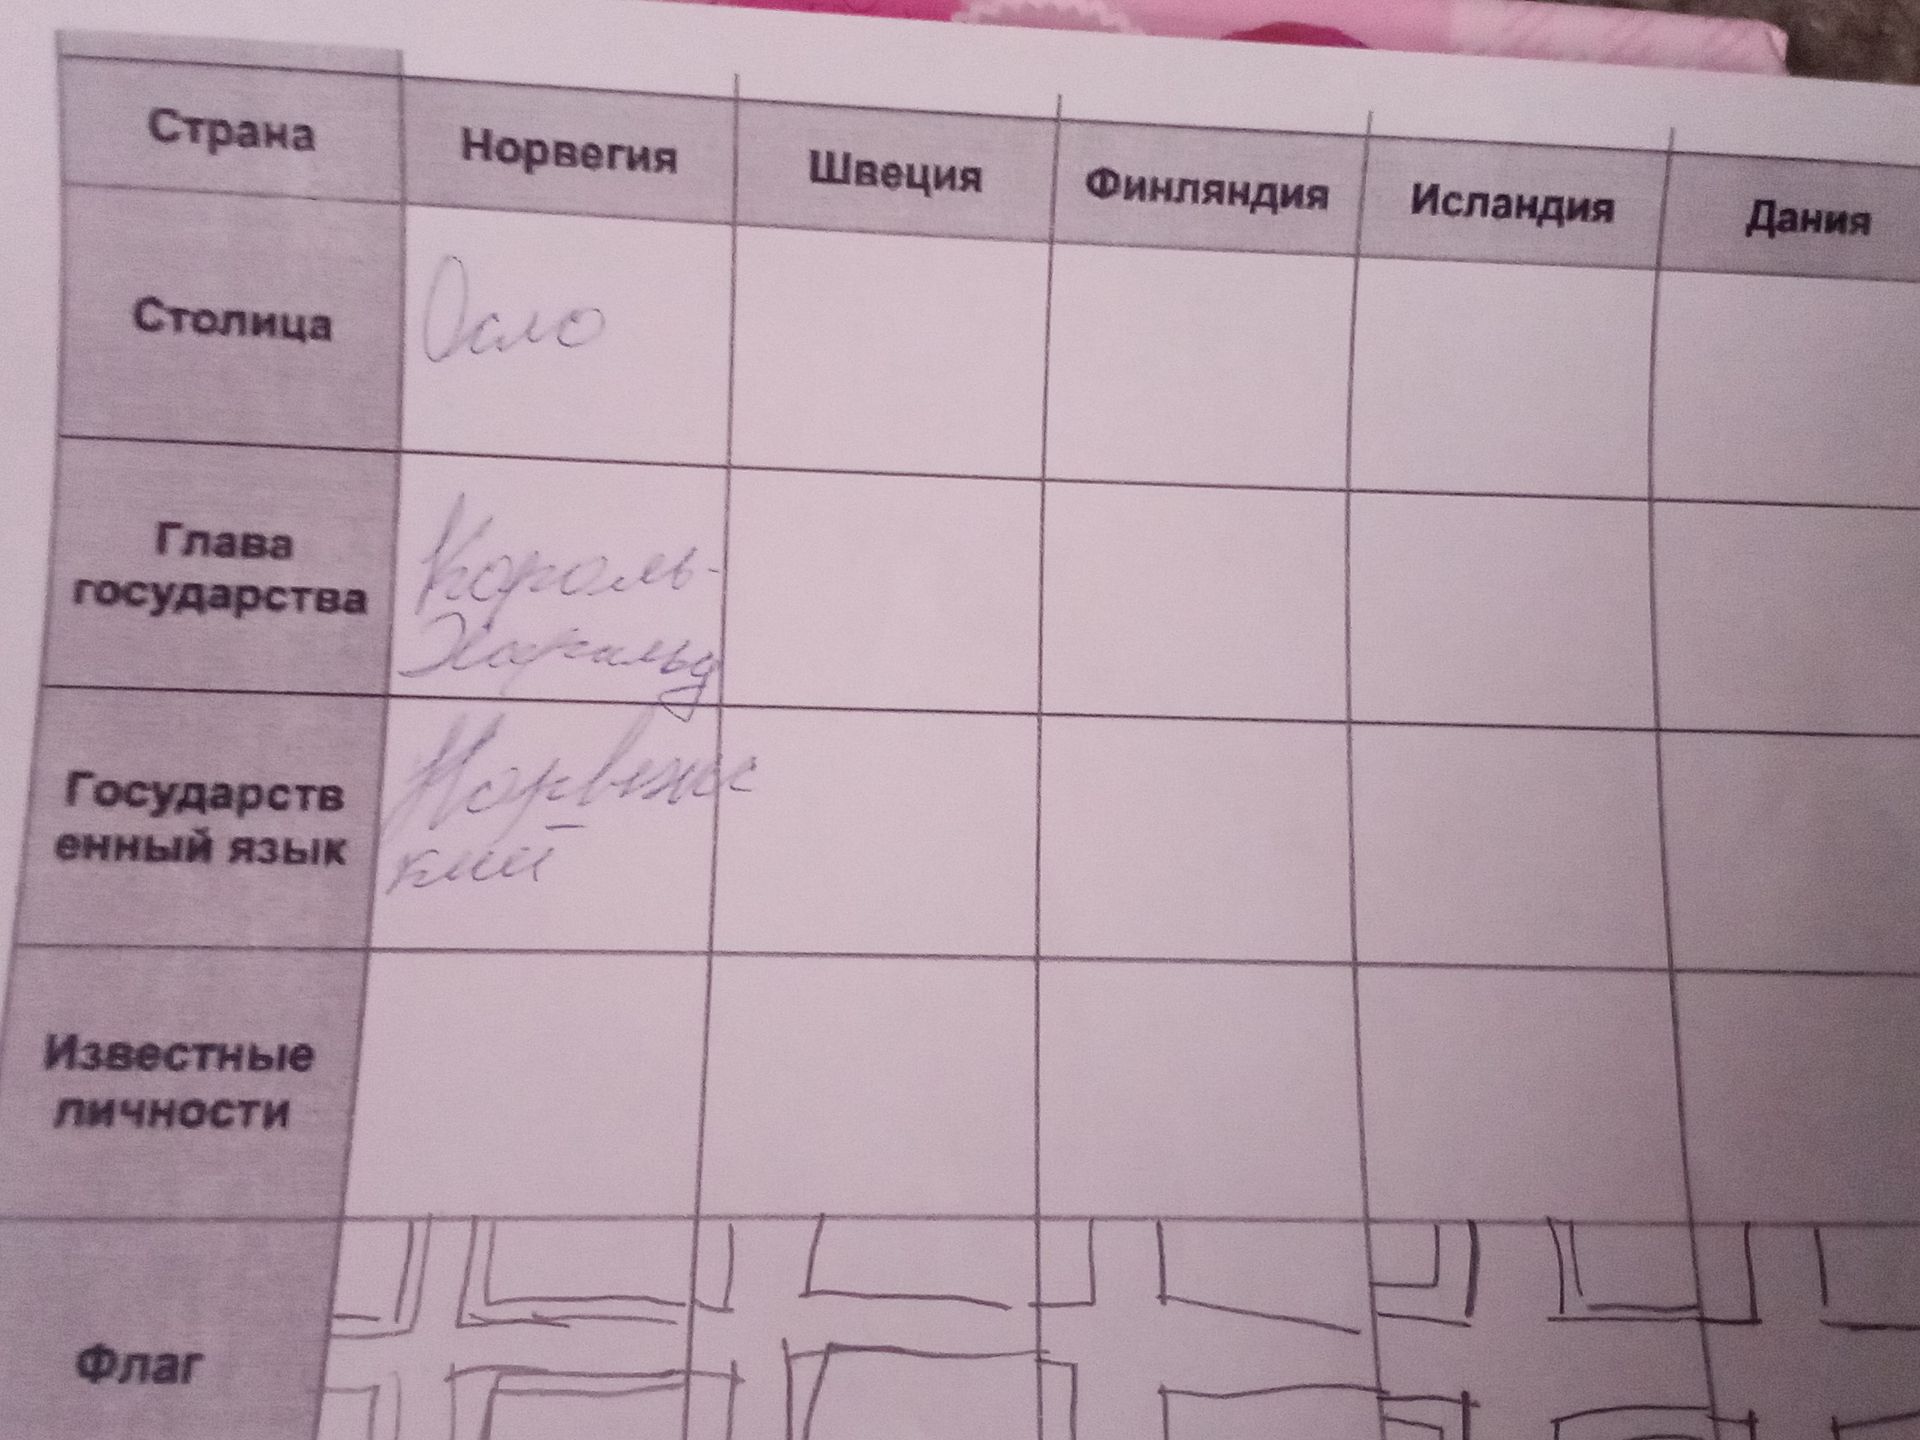 Страна Норвегия Швеция Финляндия Исландия Дания
Столица Осло
Глава
государства
Король-
Харальд
Государств
енный язык
Норвежс
кий
Известные
личности
Флаг